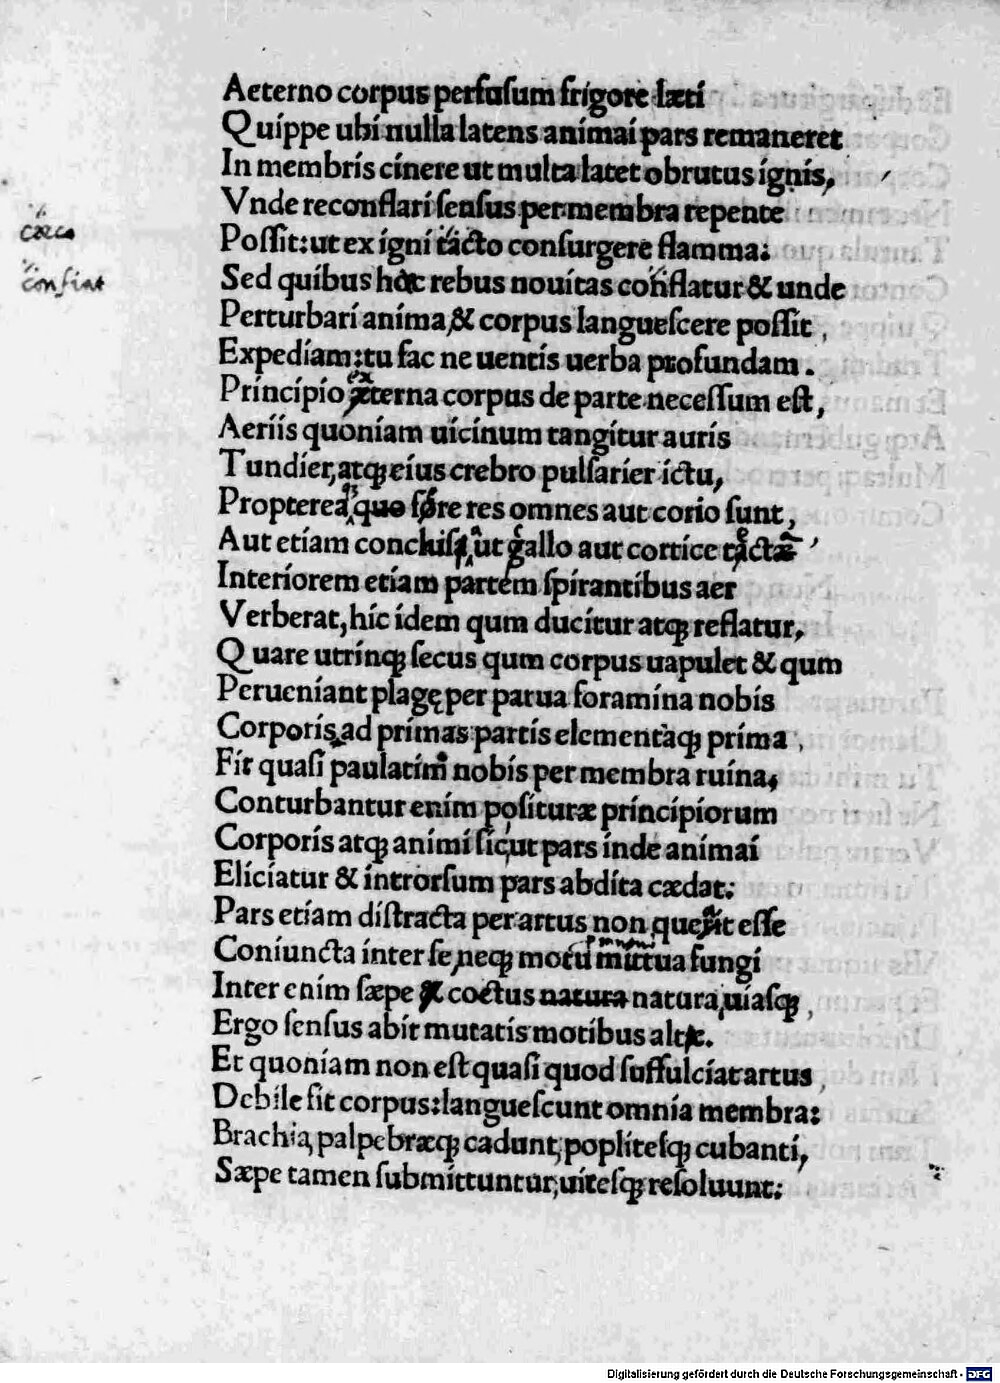 Aeterno corpus perfusum frigore læti
Quippe ubi nulla latens animai pars remaneret
In membris cinere ut multa latet obrutus ignis,
Vnde reconflari sensus per membra repente
cæco
Possit: ut ex igni tacto consurgere flamma:
confiat
Sed quibus hæc rebus nouitas conflatur & unde
Perturbari anima, & corpus languescere possit,
Expediam: tu fac ne uentis uerba profundam.
ex
Principio æterna corpus de parte necessum est,
Aeriis quoniam uicinum tangitur auris
Tundier, atq; eius crebro pulsarier ictu,
Propterea quo fere res omnes aut corio sunt,
Aut etiam conchis, aut gallo aut cortice tactæ
Interiorem etiam partem spirantibus aer
Verberat, hic idem qum ducitur atq; reflatur,
Quare utrinq; secus qum corpus uapulet & qum
Perueniant plagę per parua foramina nobis
Corporis, ad primas partis elementàq; prima,
Fit quasi paulatim nobis per membra ruina,
Conturbantur enim posituræ principiorum
Corporis atq; animi sic, ut pars inde animai
Eliciatur & introrsum pars abdita cædat:
Pars etiam distracta per artus non queat esse
Coniuncta inter se, neq; motu mutua fungi
Inter enim sæpe & coetus natura natura, uiasq;,
Ergo sensus abit mutatis motibus alte.
Et quoniam non est quasi quod suffulciat artus,
Debile fit corpus: languescunt omnia membra:
Brachia, palpebræq; cadunt, poplitesq; cubanti,
Sæpe tamen submittuntur, uitesq; resoluunt:
Digitalisierung gefördert durch die Deutsche Forschungsgemeinschaft - DFG